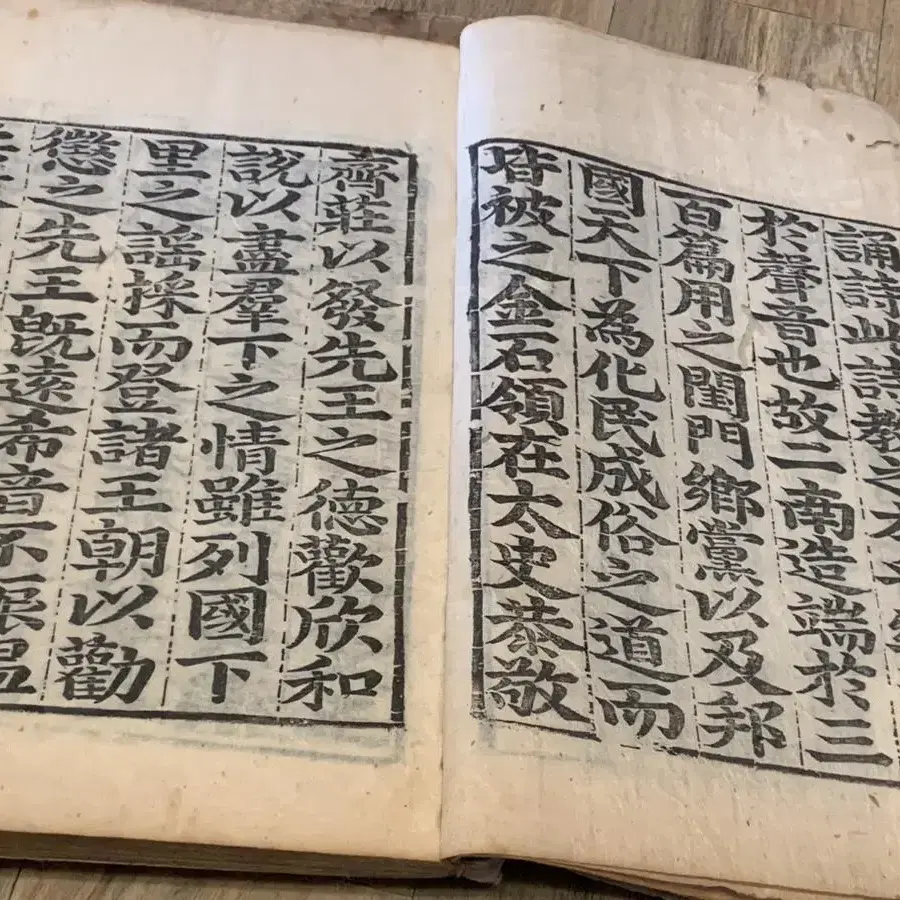 誦詩此詩教之
於聲音也故二南造端於三
百篇用之閨門鄉黨以及邦
國天下為化民成俗之道而
皆被之金石領在太史恭敬
齊莊以發先王之德歡欣和
說以盡羣下之情雖列國下
里之謠採而登諸王朝以勸
懲之先王旣遠希音不振